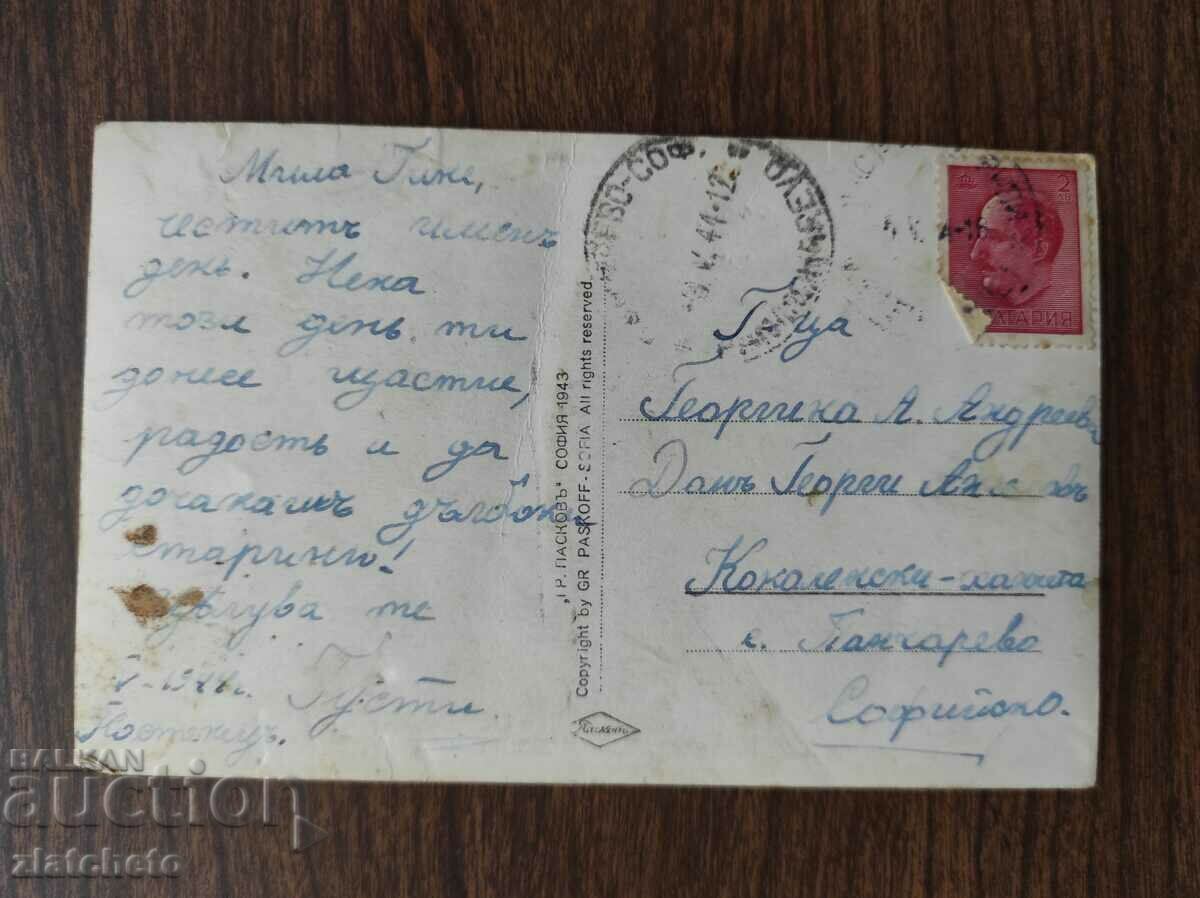 Мила Гине,
честитъ именъ
день. Нека
този день ти
донесе щастие,
радость и да
дочакашъ дълбоки
старини!
Целува те
Густи
V-1944г.
"ГР. ПАСКОВЪ" СОФИЯ 1943
Copyright by GR PASKOFF - SOFIA All rights reserved.
Пасковъ
ПАНЧАРЕВО-СОФ.
9.V.44-12
2 ЛВ
БЪЛГАРИЯ
Г-ца
Георгина А. Андреева
Данъ Георги
Кокаленски-ханчета
с. Панчарево
Софийско.
BALKAN
auction
zlatcheto